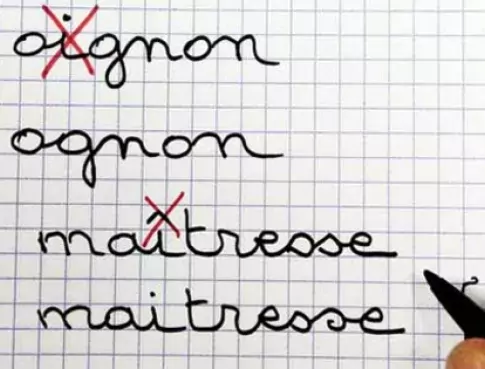 oignon
ognon
maîtresse
maitresse